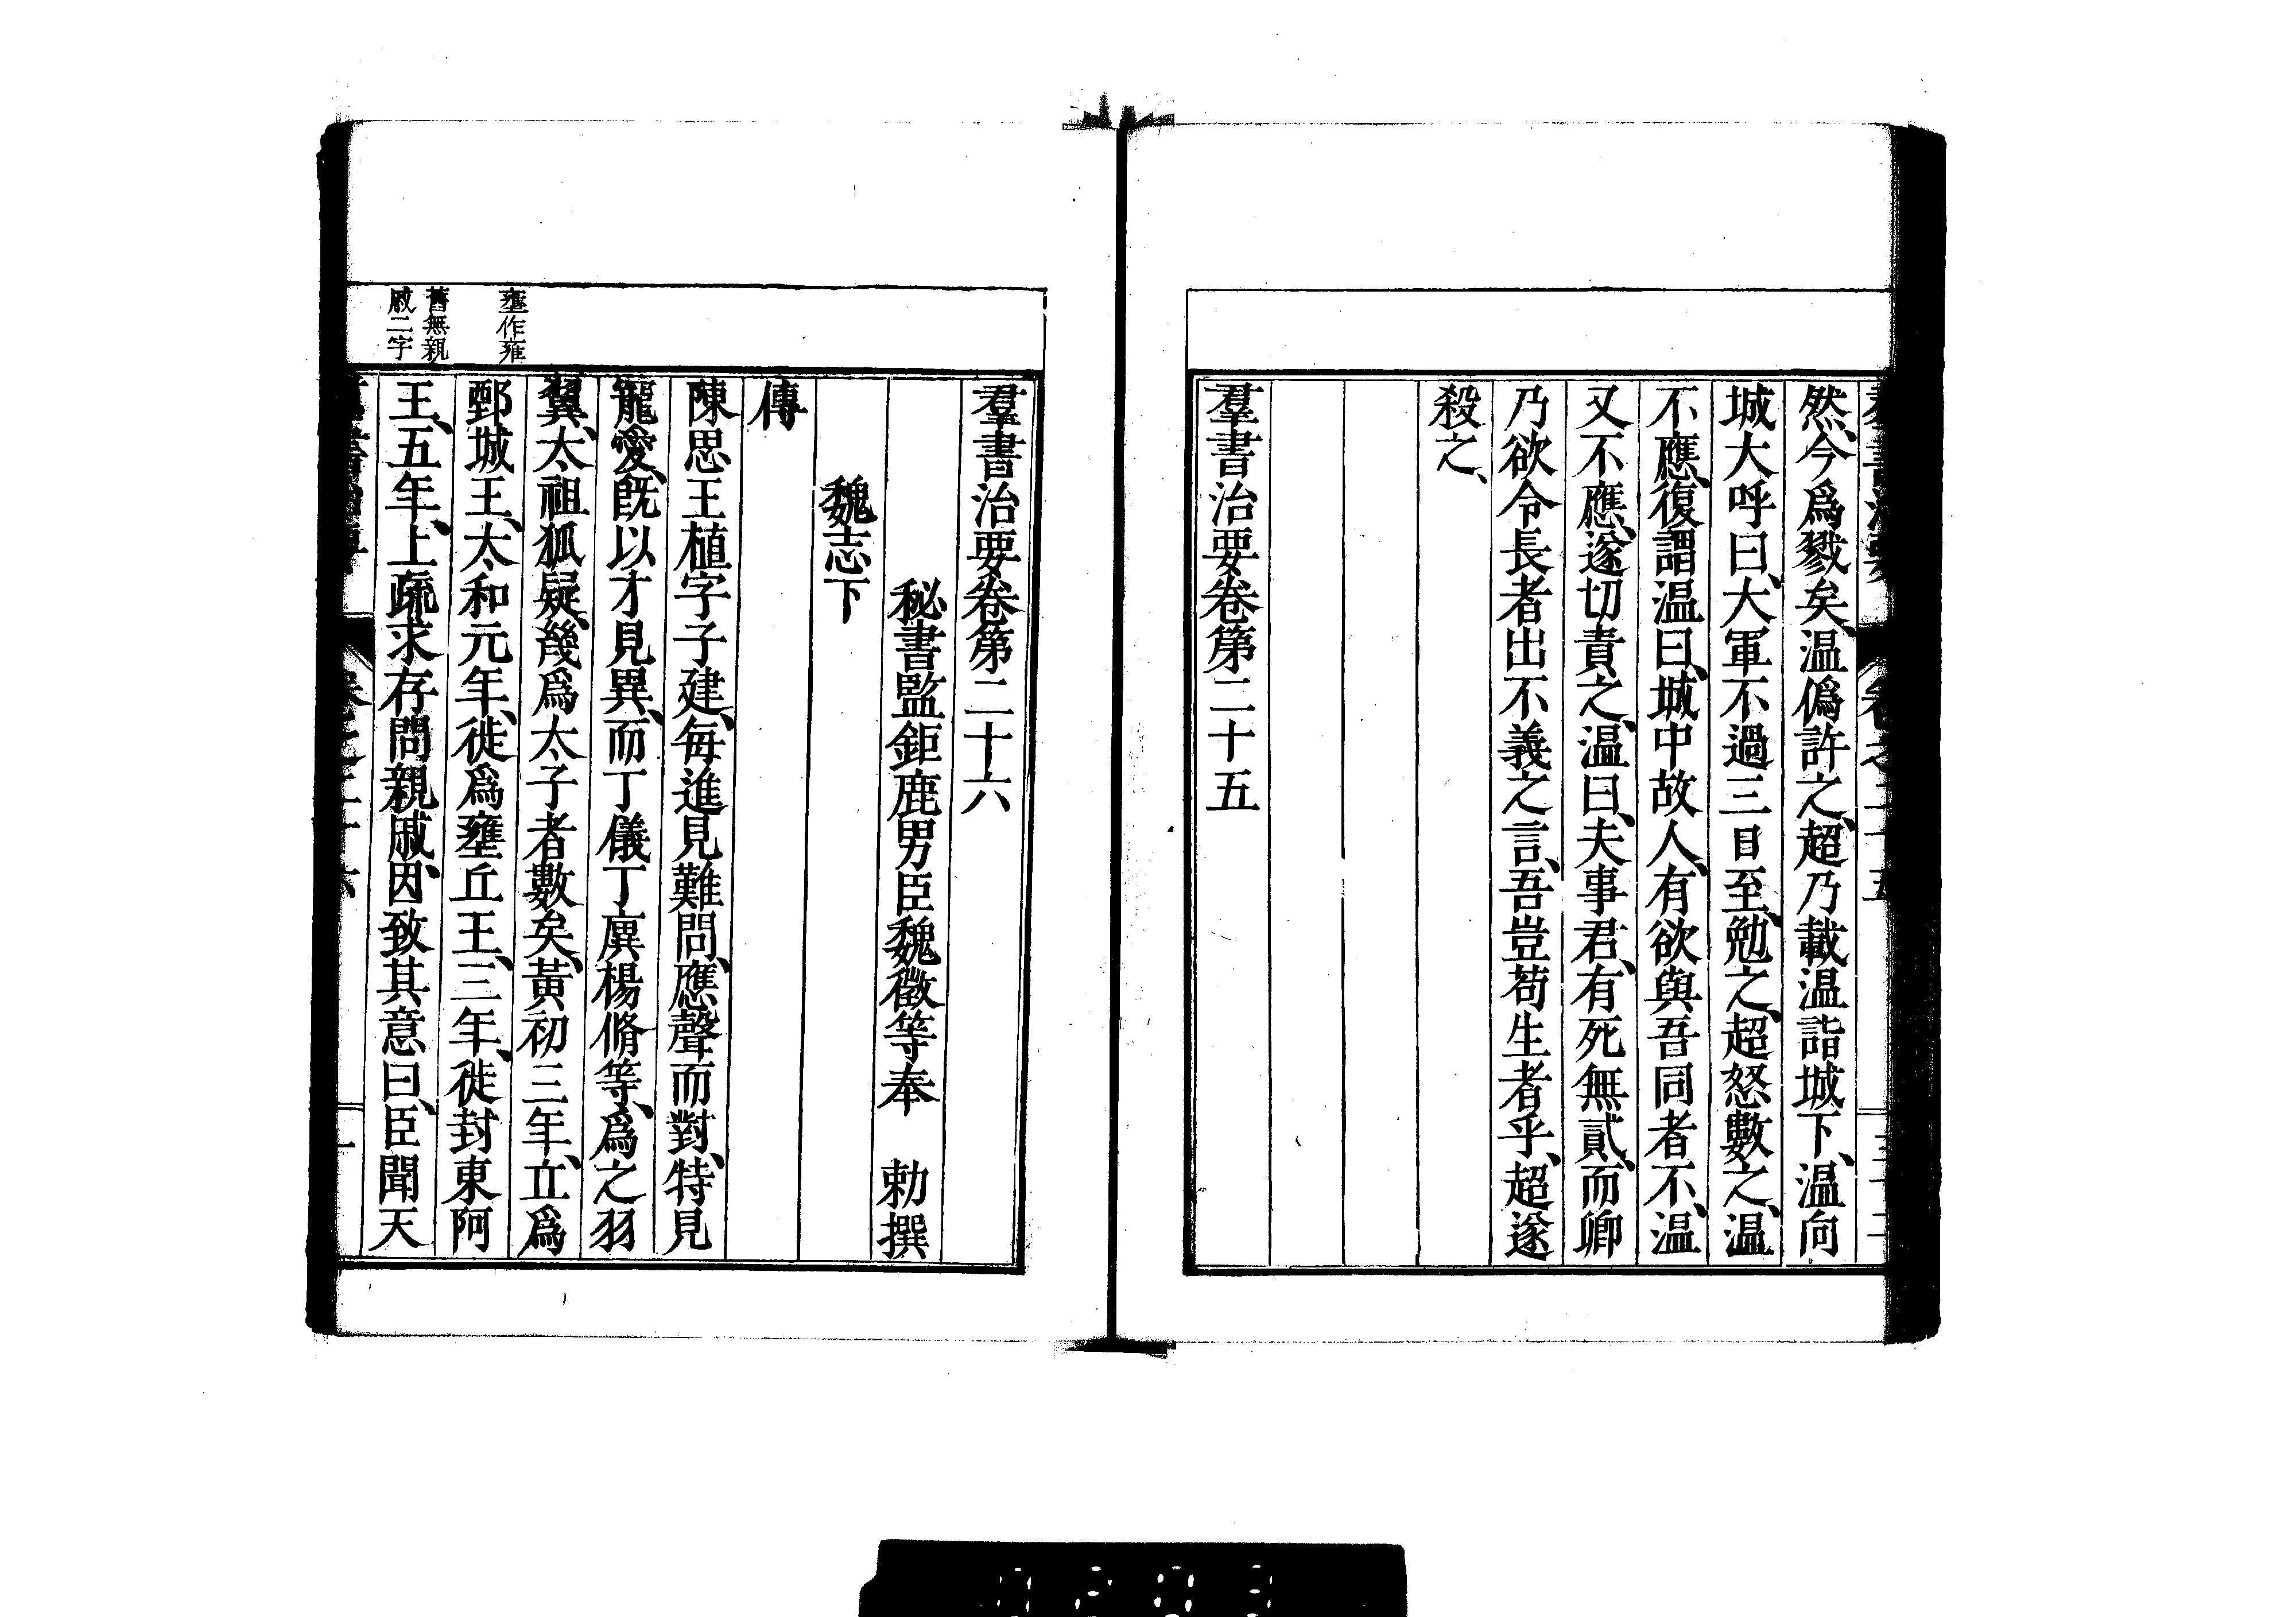 然、今爲戮矣、温僞許之、超乃載温詣城下、温向
城大呼曰、大軍不過三日至、勉之、超怒數之、温
不應、復謂温曰、城中故人、有欲與吾同者不、温
又不應、遂切責之、温曰、夫事君、有死無貳、而卿
乃欲令長者出不義之言、吾豈苟生者乎、超遂
殺之、
羣書治要卷第二十五
羣書治要卷第二十六
秘書監鉅鹿男臣魏徵等奉　勅撰
魏志下
傳
陳思王植字子建、每進見難問、應聲而對、特見
寵愛、既以才見異、而丁儀丁廙楊脩等、爲之羽
翼、太祖狐疑、幾爲太子者數矣、黃初三年、立爲
鄄城王、太和元年、徙爲壅丘王、三年、徙封東阿
王、五年、上疏求存問親戚、因致其意曰、臣聞天
壅作雍
舊無親
戚二字